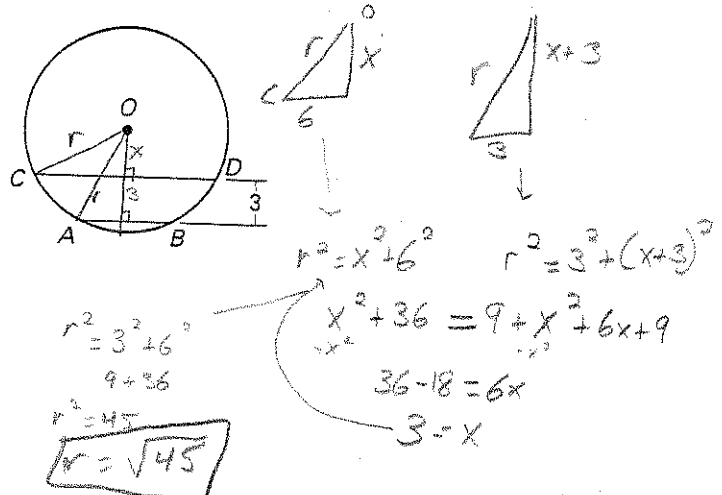 O
r
x
C
D
3
3
r
A
B
O
r
x
C
6
r
x+3
3
r² = x² + 6²
r² = 3² + (x+3)²
x² + 36 = 9 + x² + 6x + 9
-x²
-x²
36 - 18 = 6x
3 = x
r² = 3² + 6²
9 + 36
r² = 45
r = √45